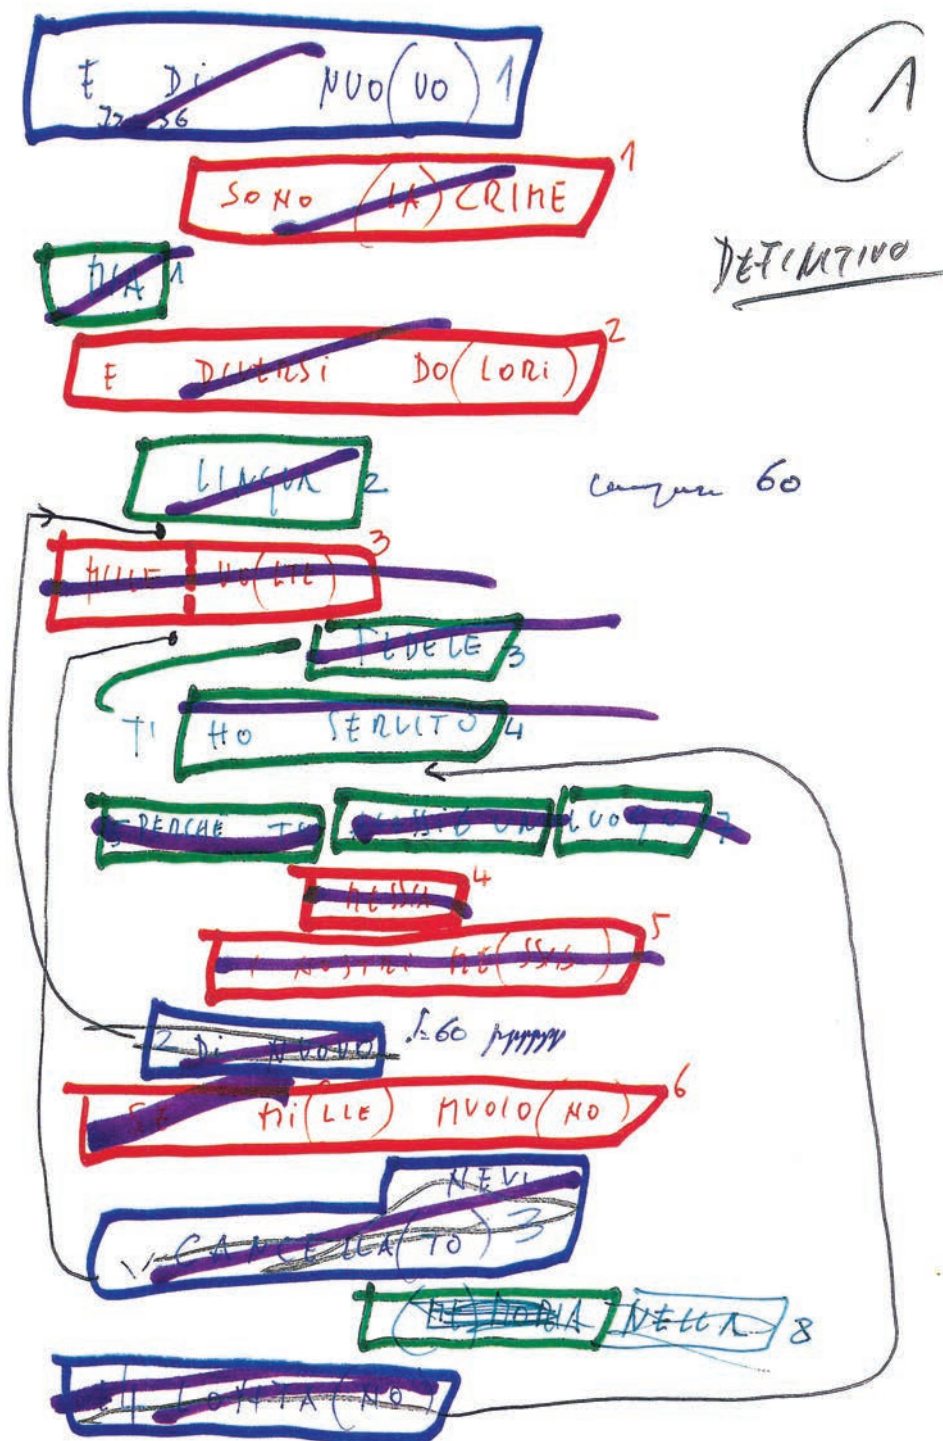 E DI NUO(VO) 1
1
SONO (LA)CRIME 1
MIA 1
DEFINITIVO
E DIVERSI DO(LORI) 2
LINGUA 2
60
MILLE VO(LTE) 3
FEDELE 3
TI HO SERVITO 4
PERCHE TU UN LUOGO 7
MESSIA 4
I NOSTRI ME(SSIA) 5
2 DI NUOVO 60
SE MI(LLE) MUOIO(NO) 6
NEVI
CANCELLA(TO) 3
(ME)MORIA NELLA 8
LONTA(NO)